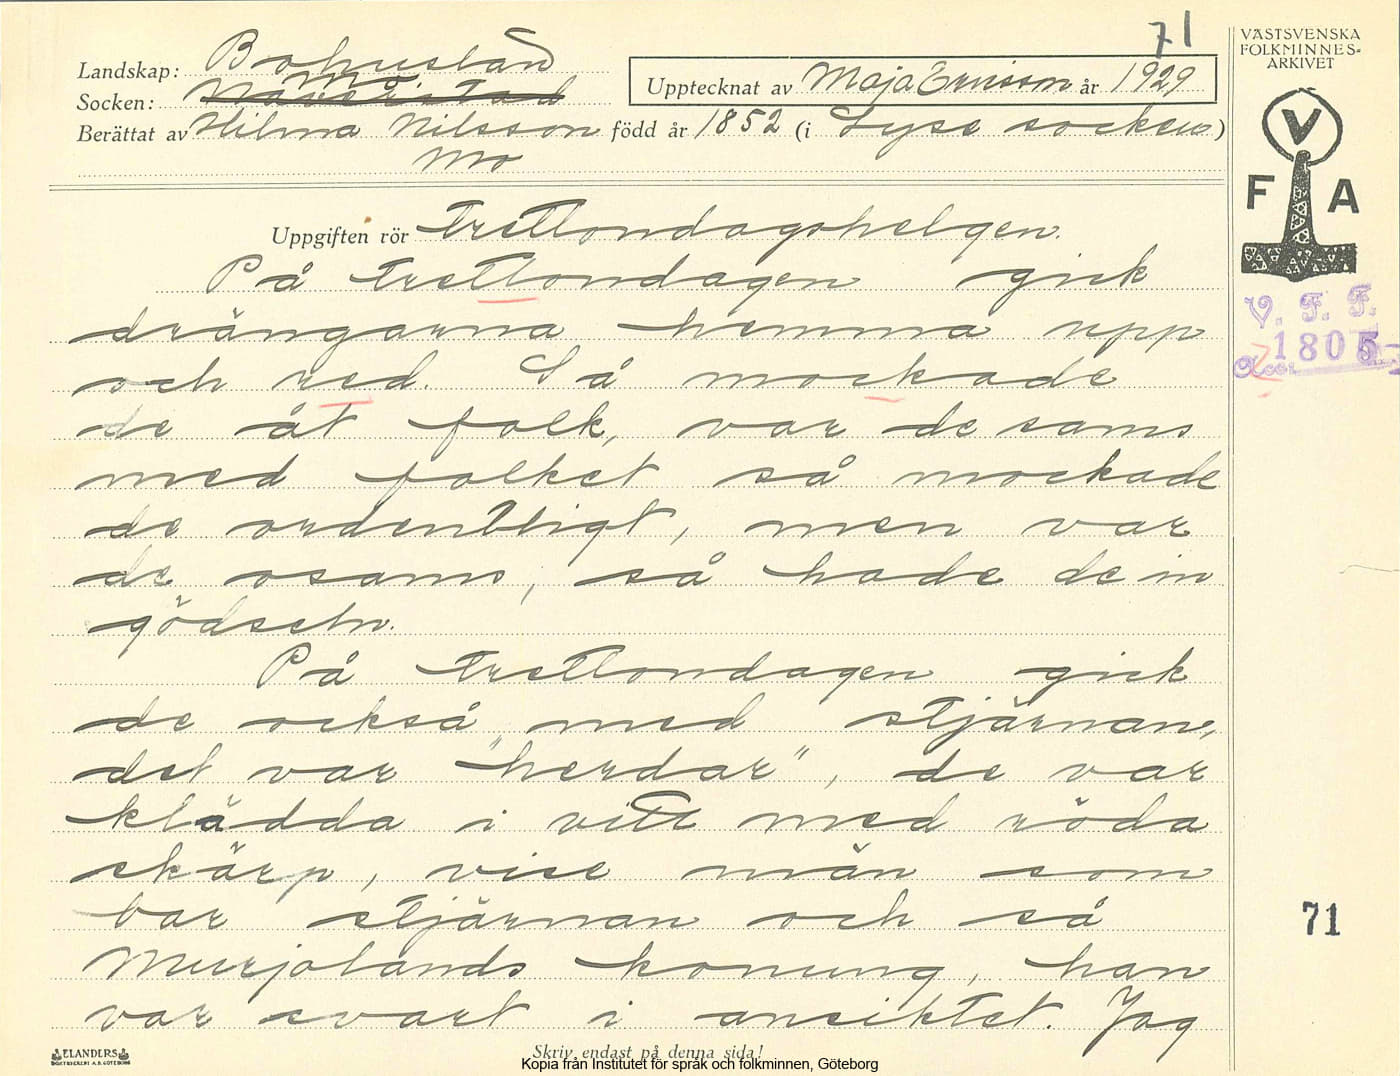 71
VÄSTSVENSKA
FOLKMINNES-
ARKIVET
Landskap: Bohuslän
Mo
Socken: Naverstad
Upptecknat av Maja Ericsson år 1929
Berättat av Hilma Nilsson född år 1852 (i Lyse socken)
Mo
V
F A
Uppgiften rör Trettondagshelgen.
På trettondagen gick
drängarna hemma upp
och red. Så mockade
de åt folk, var de sams
med folket så mockade
de ordentligt, men var
de osams, så hade de in
gödseln.
På trettondagen gick
de också med stjärnan,
det var "herdar", de var
klädda i vitt med röda
skärp, vise män som
bar stjärnan och så
Murjolands konung, han
var svart i ansiktet. Jag
V. F. F.
1805
Acc:
71
ELANDERS
Skriv endast på denna sida!
Kopia från Institutet för språk och folkminnen, Göteborg